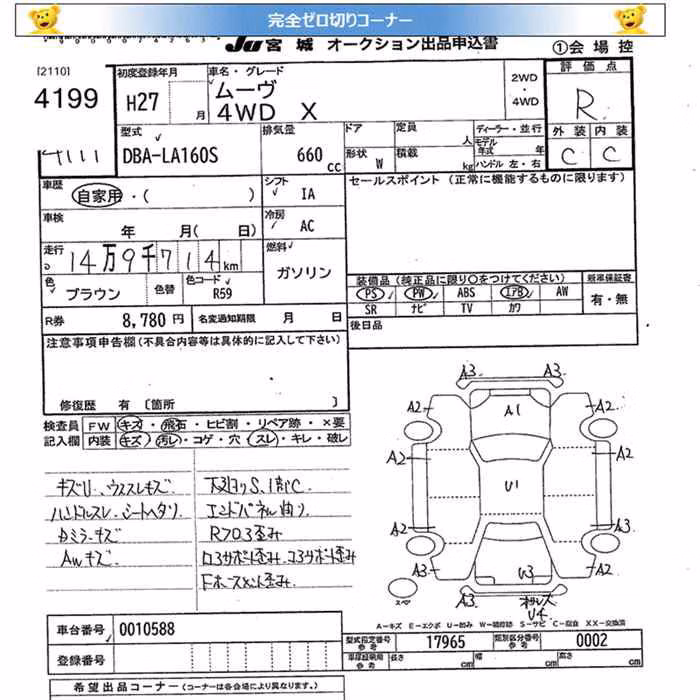 完全ゼロ切りコーナー
JU宮城 オークション出品申込書
①会場控
[2110]
4199
初度登録年月
H27 月
車名・グレード
ムーヴ
4WD X
2WD
・
4WD
評価点
R
外装 内装
C C
型式
DBA-LA160S
排気量
660 cc
ドア 定員 人
形状 W 積載 kg
ディーラー・並行
モデル年式 年
ハンドル 左・右
車歴
自家用・( )
シフト
IA
セールスポイント (正常に機能するものに限ります)
車検
年 月( 日)
冷房
AC
走行
14万9千714km
燃料
ガソリン
色
ブラウン
色替
色コード
R59
装備品 (純正品に限り○をつけてください)
新車保証書
PS PW ABS エアB AW
有・無
SR ナビ TV カワ
R券 8,780円
名変通知期限 月 日
後日品
注意事項申告欄 (不具合内容等は具体的に記入して下さい)
修復歴 有 〔箇所 〕
検査員記入欄
FW キズ・飛石・ヒビ割・リペア跡・×要
内装 キズ・汚レ・コゲ・穴・スレ・キレ・破レ
キズU、ウススレキズ
ハンドルスレ シートヘタリ
ミラーキズ
AWキズ
下廻りS、1部C
エンドパネル曲り
Rフロア歪み
ロアサポート歪み コアサポート歪み
A3 A3
A2 A1 A2
A2 A2
U1
A2 A3
A3 U3 A2
スペア
A3
U4
A-キズ E-エクボ U-凹み W-補修跡 S-サビ C-腐食 XX-交換済
車台番号 0010588
型式指定番号
参考
17965
類別区分番号
参考
0002
登録番号
長さ cm 幅 cm 高さ cm
希望出品コーナー (コーナーは各会場により異なります。)